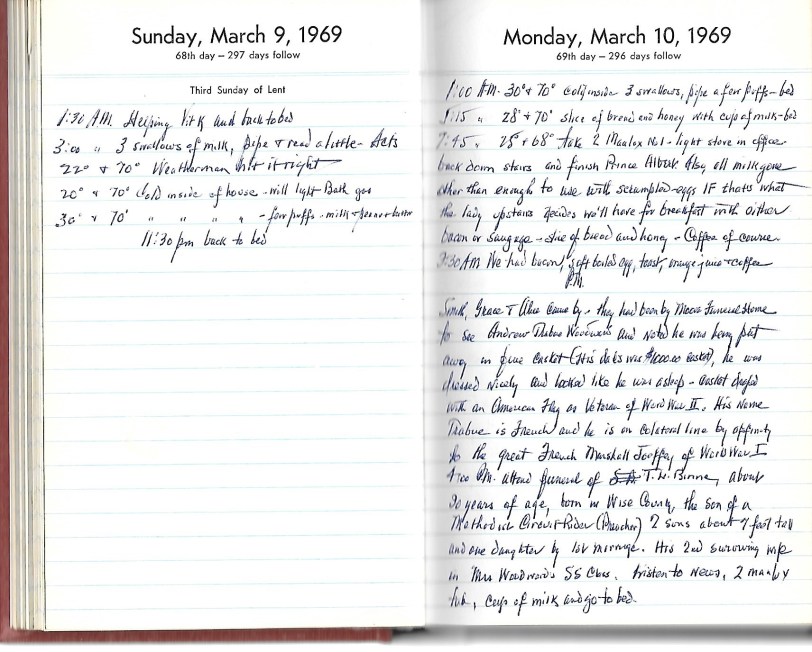 Sunday, March 9, 1969
68th day – 297 days follow
Third Sunday of Lent
1:30 AM. Helping Vit K and back to bed
3:00 " 3 swallows of milk, pipe & read a little - Acts
22° & 70° Weatherman hit it right
20° & 70° Cold inside of house - will light Bath gas
30° & 70° " " " " - few puffs - milk &
11:30 pm back to bed
Monday, March 10, 1969
69th day – 296 days follow
1:00 AM. 30° & 70° cold inside 3 swallows, pipe a few puffs - bed
1:15 " 28° & 70° slice of bread and honey with cup of milk - bed
7:45 " 25 & 68° take 2 Maalox No 1 - light stove in office.
back down stairs and finish Prince Albert Also all milk gone
other than enough to use with scrambled eggs IF thats what
the lady upstairs decides we'll have for breakfast with either
bacon or sausage - slice of bread and honey - Coffee of course.
9:30 AM We had bacon, soft boiled egg, toast, orange juice & coffee
P.M.
Smith, Grace & Alice came by - they had been by Moore Funeral Home
to see Andrew and noted he was being put
away in fine casket (His debts was $1000.00 casket), he was
dressed nicely and looked like he was asleep - casket draped
with an American Flag as Veteran of World War II. His name
is French and he is on colateral line by affinity
to the great French Marshall Joffrey of World War I
4:00 P.M. attend funeral of T. W. about
90 years of age, born in Wise County, the son of a
Methodist Circuit Rider (Preacher) 2 sons about 7 feet tall
and one daughter by 1st marriage. His 2nd surviving wife
in Mrs Woodwards SS Class. Listen to News, 2
tub, cup of milk and go to bed.